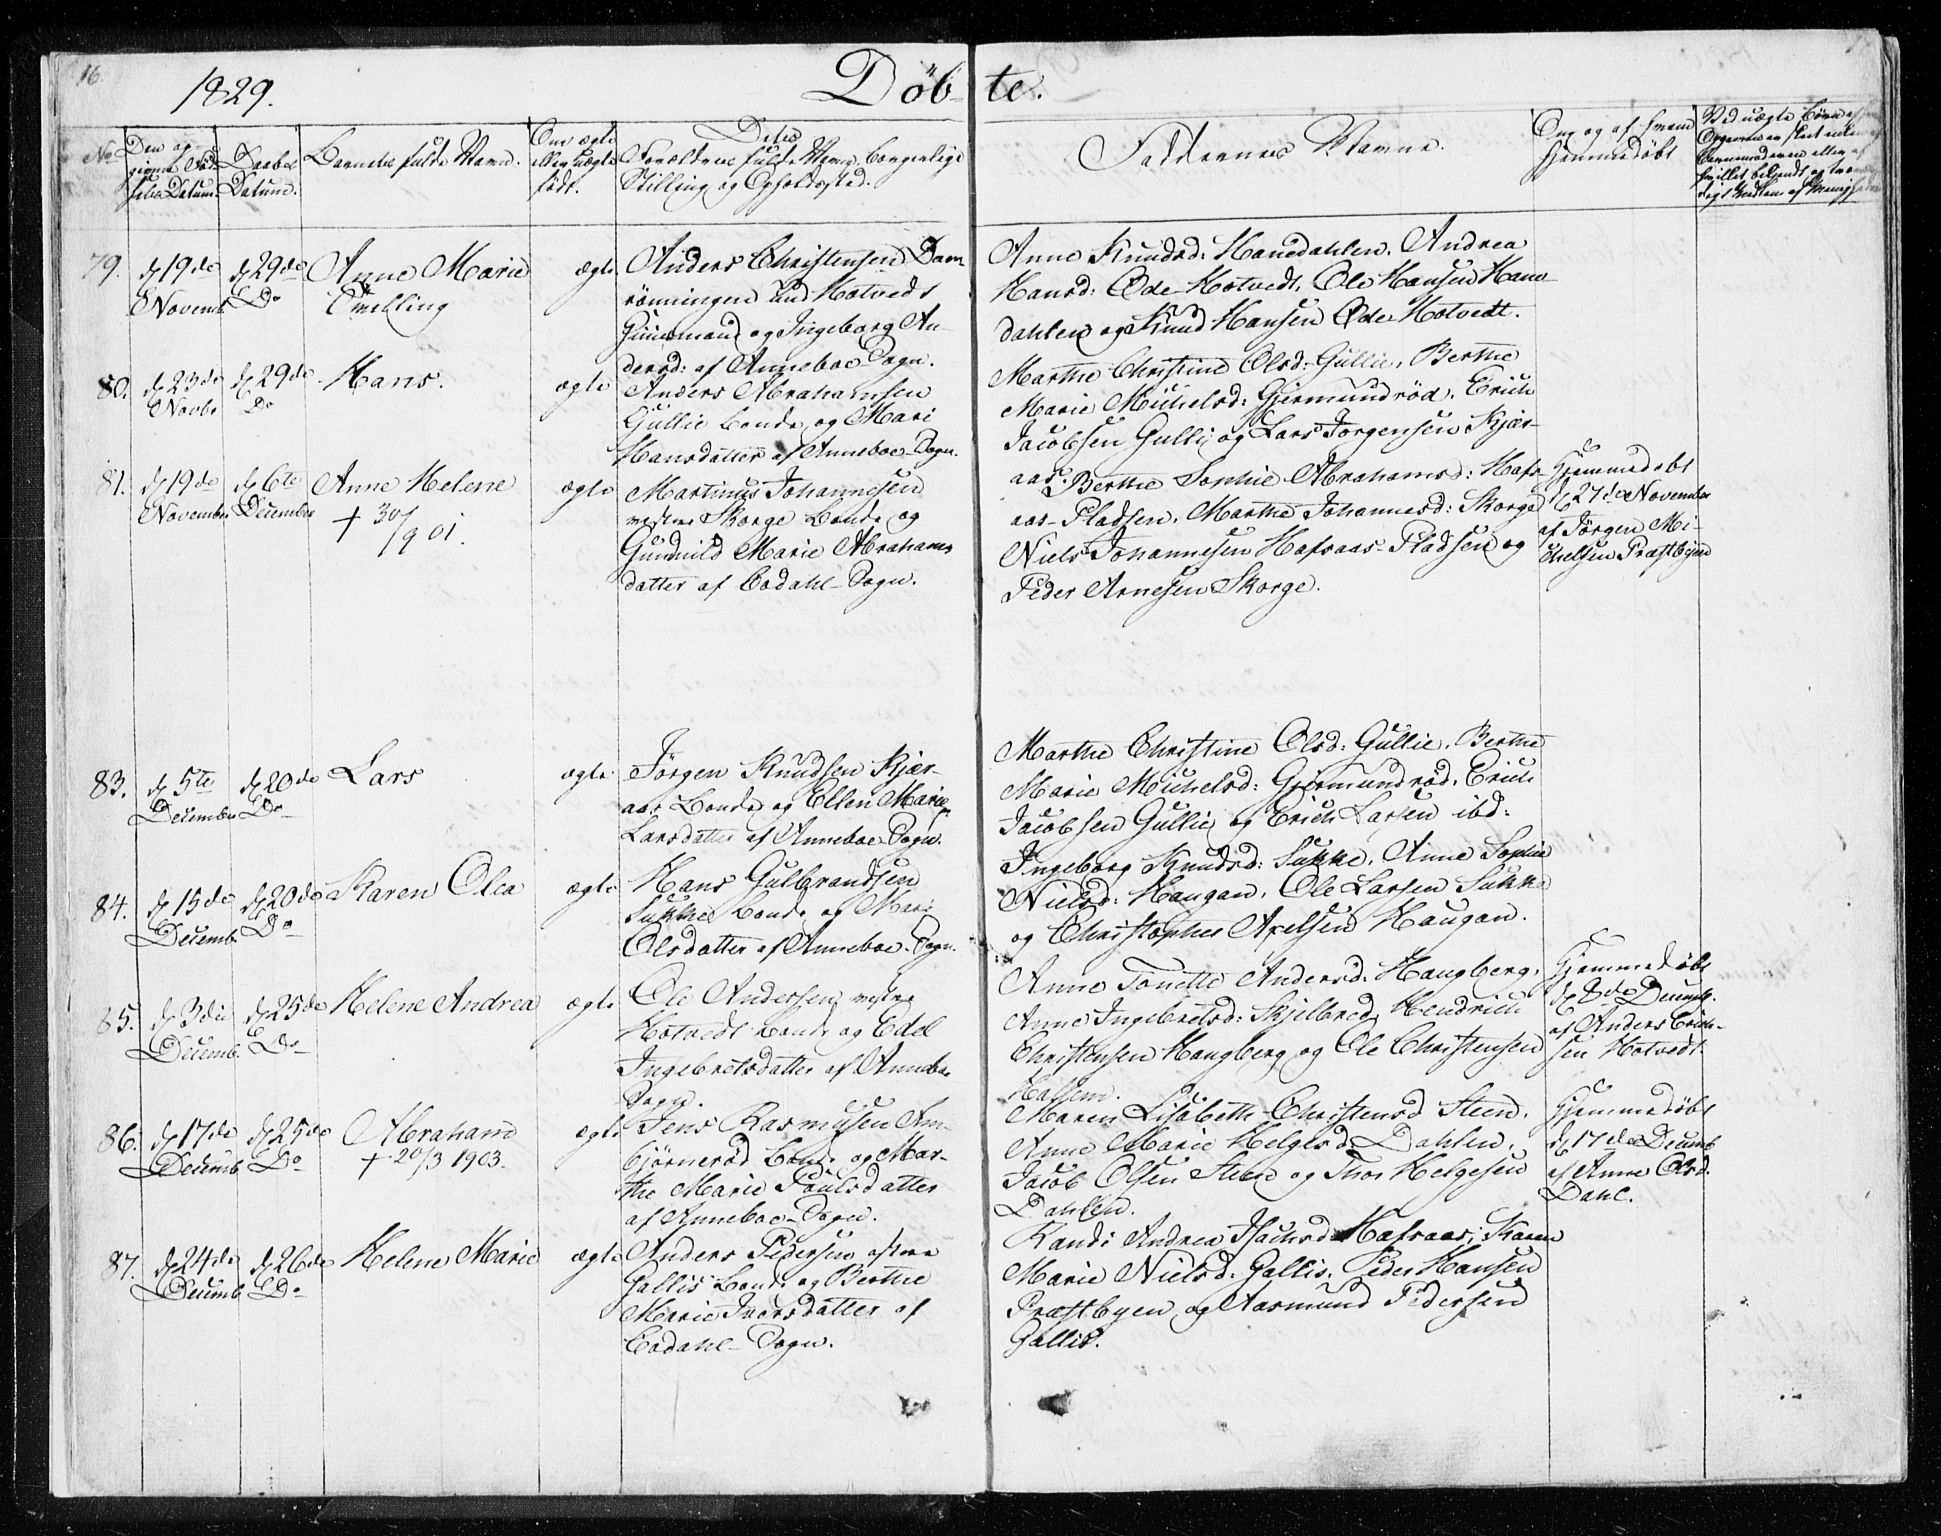 16.
1829.
Døbte.
No.
Den angivne Fødselsdatum.
Daabsdatum.
Barnets fulde Navn.
Om ægte eller uægte født.
Dets Forældres fulde Navn, borgerlige
Stilling og Opholdssted.
Faddernes Navne.
Om og af hvem
hjemmedøbt
79. d 19de Novemb. d 29de Do Anne Marie Tvilling ægte
Anders Christensen Dam-
rönningen und Hotvedt
Huusmand og Ingeborg An-
dersd: af Anneboe Sogn.
Anne Knudsd: Hanedahlen, Andrea
Hansd: Øde Hotvedt, Ole Hansen Hane-
dahlen og Knud Hansen Øde Hotvedt.
80. d 23de Novbr d 29de Do Hans. ægte
Anders Abrahamsen
Gullie Bonde og Mari
Hansdatter af Anneboe-Sogn.
Marthe Christine Olsd: Gullie, Berthe
Marie Michelsd: Gjermundrød, Erich
Jacobsen Gulli og Lars Jörgensen Kjær-
aas.
81. d 19de November d 6te December Anne Helene ægte
+ 30/9 01.
Martinus Johannesen
vestre Skorge Bonde og
Gunnild Marie Abrahams
datter af Codahl-Sogn.
Berthe Sophie Abrahamsd: Hafs-
aas-Pladsen, Marthe Johannesd: Skorge
Niels Johannesen Hafsaas-Pladsen og
Peder Arnesen Skorge.
Hjemmedøbt
d 27de November
af Jörgen Mi-
chelsen Præstbyen
83. d 5te December d 20de Do Lars ægte
Jörgen Knudsen Kjær-
aas Bonde og Ellen Marie
Larsdatter af Anneboe-Sogn.
Marthe Christine Olsd: Gullie, Berthe
Marie Michelsd: Gjermundrød, Erich
Jacobsen Gullie og Erich Larsen ibd:
84. d 15de Decemb. d 20de Do Karen Olea ægte
Hans Gulbrandsen
Sukke Bonde og Mari
Olsdatter af Anneboe-Sogn.
Ingeborg Knudsd: Sukke, Anne Sophie
Nielsd: Haugan, Ole Larsen Sukke
og Christopher Axelsen Haugan.
85. d 3die Decemb. d 25de Do Helene Andrea ægte
Ole Andersen vestre
Hotvedt Bonde og Edel
Ingebretsdatter af Anneboe
Sogn.
Anne Tonette Andersd: Haugberg,
Anne Ingebretsd: Skjelbred, Hendrich
Christensen Haugberg og Ole Christensen
Halsen.
Hjemmedøbt
d 8de Decemb.
af Anders Erich-
sen Hotvedt
86. d 17de Decemb d 25de Do Abraham ægte
+ 20/3 1903.
Jens Rasmusen Am-
björneröd Bonde og Mar-
the Marie Poulsdatter
af Anneboe-Sogn.
Maren Lisabeth Christensd Steen,
Anne Marie Helgesd: Dahlen,
Jacob Olsen Steen og Thor Helgesen
Dahlen.
Hjemmedøbt
d 17de Decemb
af Anne Olsd.
Dahl.
87. d 24de Decemb d 26de Do Helene Marie ægte
Anders Pedersen östre
Gallis Bonde og Berthe
Marie Iversdatter af
Codahl-Sogn.
Randi Andrea Isachsd Hafsaas, Karen
Marie Nielsd: Gallis, Peder Hansen
Præstbyen og Aasmund Pedersen
Gallis.